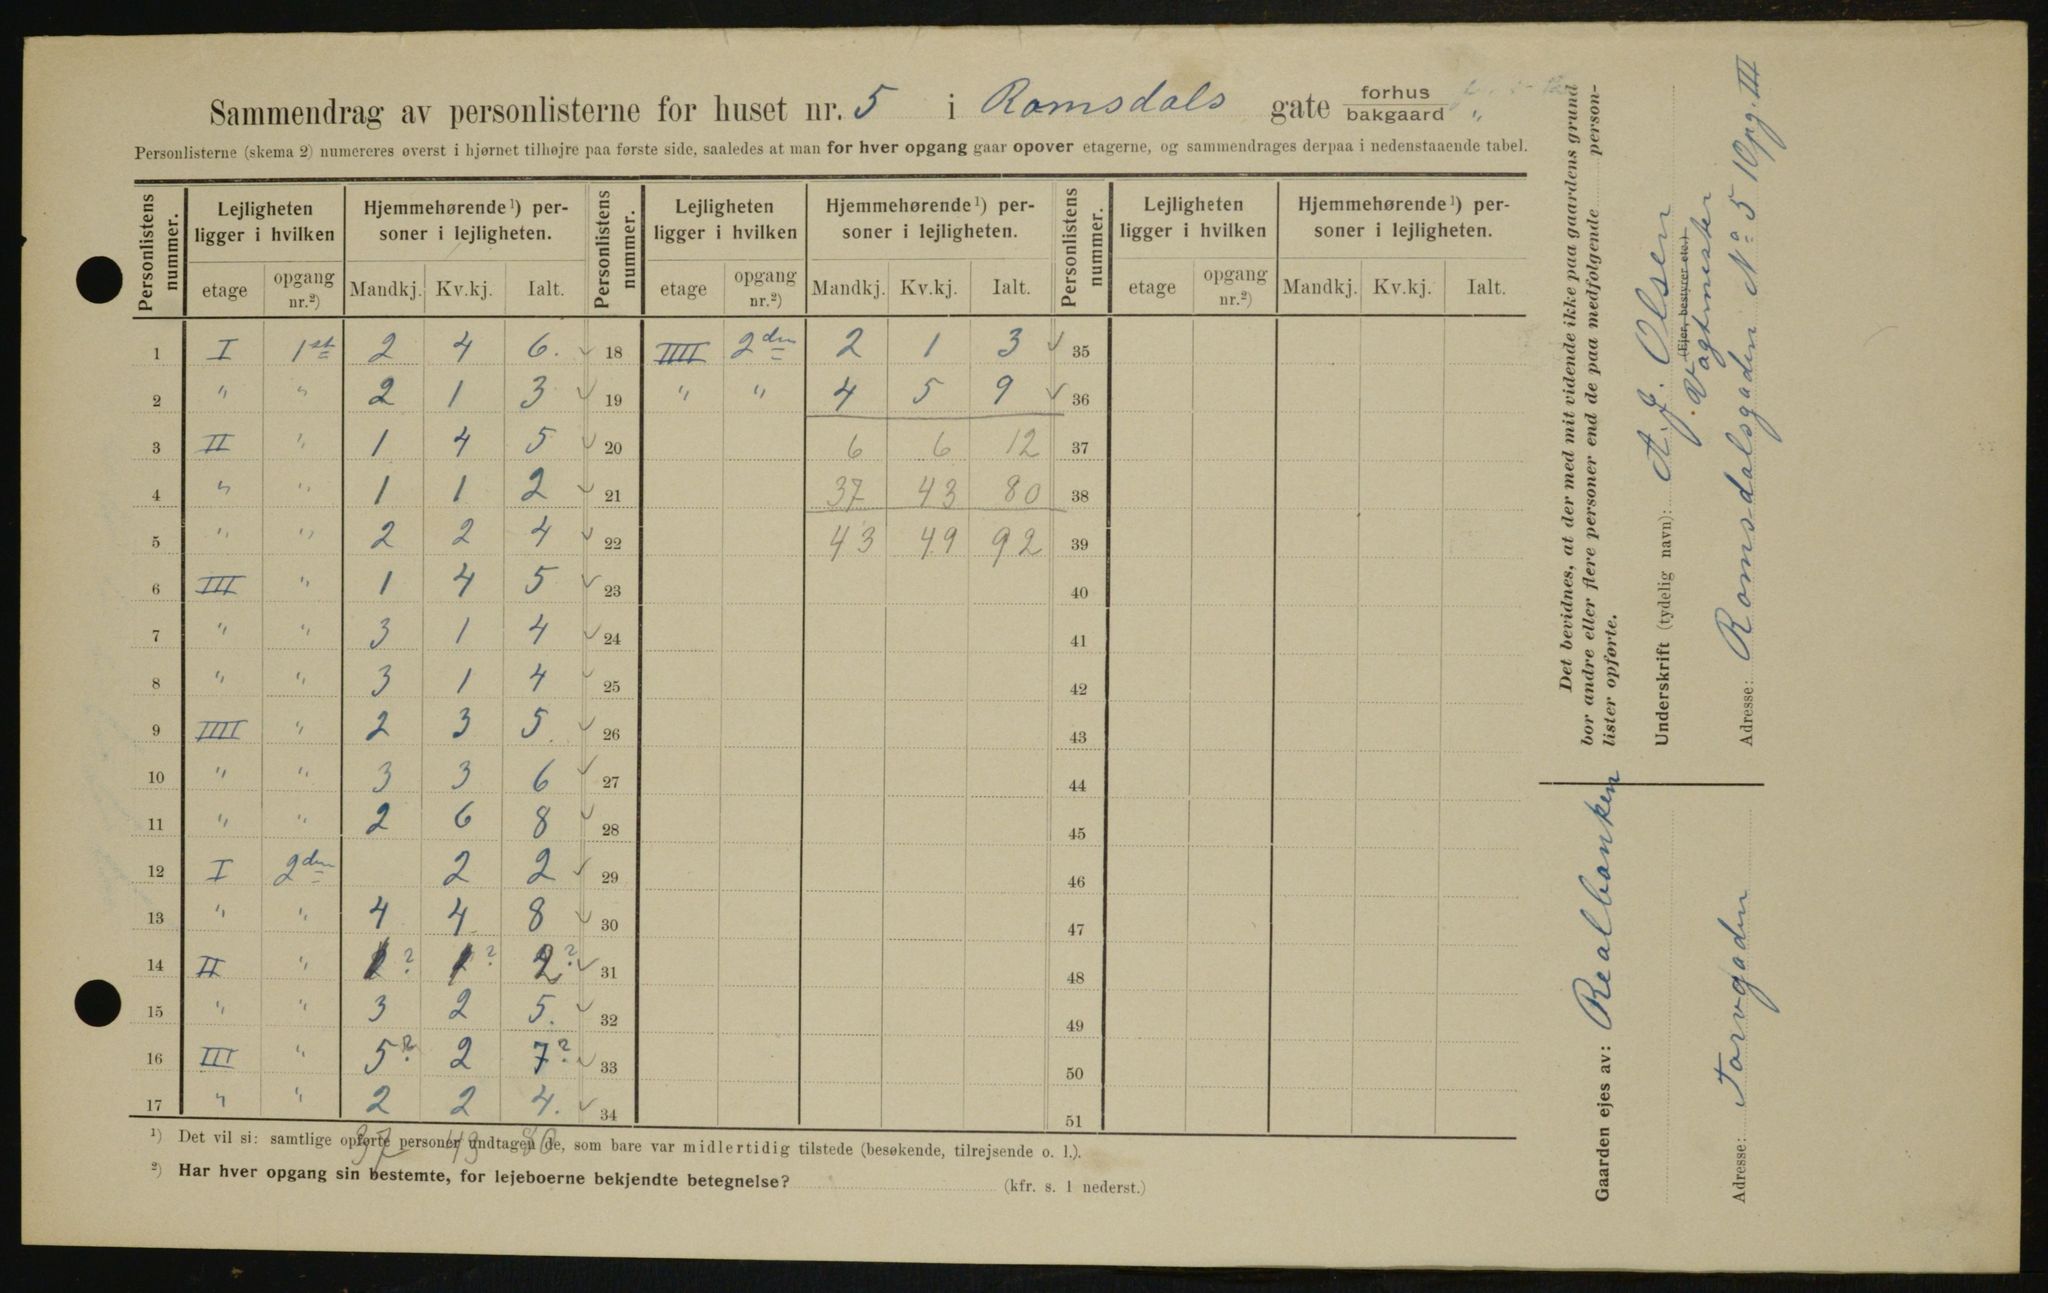 Sammendrag av personlisterne for huset nr. 5 i Romsdals gate forhus bakgaard "
Personlisterne (skema 2) numereres øverst i hjørnet tilhøjre paa første side, saaledes at man for hver opgang gaar opover etagerne, og sammendrages derpaa i nedenstaaende tabel.
Personlistens nummer. Lejligheten ligger i hvilken Hjemmehørende ¹) personer i lejligheten. Personlistens nummer. Lejligheten ligger i hvilken Hjemmehørende ¹) personer i lejligheten. Personlistens nummer. Lejligheten ligger i hvilken Hjemmehørende ¹) personer i lejligheten.
etage opgang nr.²) Mandkj. Kv.kj. Ialt. etage opgang nr.²) Mandkj. Kv.kj. Ialt. etage opgang nr.²) Mandkj. Kv.kj. Ialt.
1 I 1st 2 4 6. ✓ 18 IIII 2den 2 1 3 ✓ 35
2 " " 2 1 3 ✓ 19 " " 4 5 9 ✓ 36
3 II " 1 4 5 ✓ 20 6 6 12 37
4 " " 1 1 2 ✓ 21 37 43 80 38
5 " " 2 2 4 ✓ 22 43 49 92 39
6 III " 1 4 5 ✓ 23 40
7 " " 3 1 4 ✓ 24 41
8 " " 3 1 4 ✓ 25 42
9 IIII " 2 3 5. ✓ 26 43
10 " " 3 3 6 ✓ 27 44
11 " " 2 6 8 ✓ 28 45
12 I 2den 2 2 ✓ 29 46
13 " " 4 4 8 ✓ 30 47
14 II " 1? 1? 2? ✓ 31 48
15 " " 3 2 5. ✓ 32 49
16 III " 5? 2 7? ✓ 33 50
17 " " 2 2 4. ✓ 34 51
37 43 80
¹) Det vil si: samtlige opførte personer undtagen de, som bare var midlertidig tilstede (besøkende, tilrejsende o. l.).
²) Har hver opgang sin bestemte, for lejeboerne bekjendte betegnelse? (kfr. s. 1 nederst.)
Det bevidnes, at der med mit vidende ikke paa gaardens grund
bor andre eller flere personer end de paa medfølgende person-
lister opførte.
Underskrift (tydelig navn): A. J. Olsen
(Ejer, bestyrer etc.)
Vagtmester
Adresse: Romsdalsgaden No 5 Opg. III
Gaarden ejes av: Realbanken
Adresse: Torvgaden